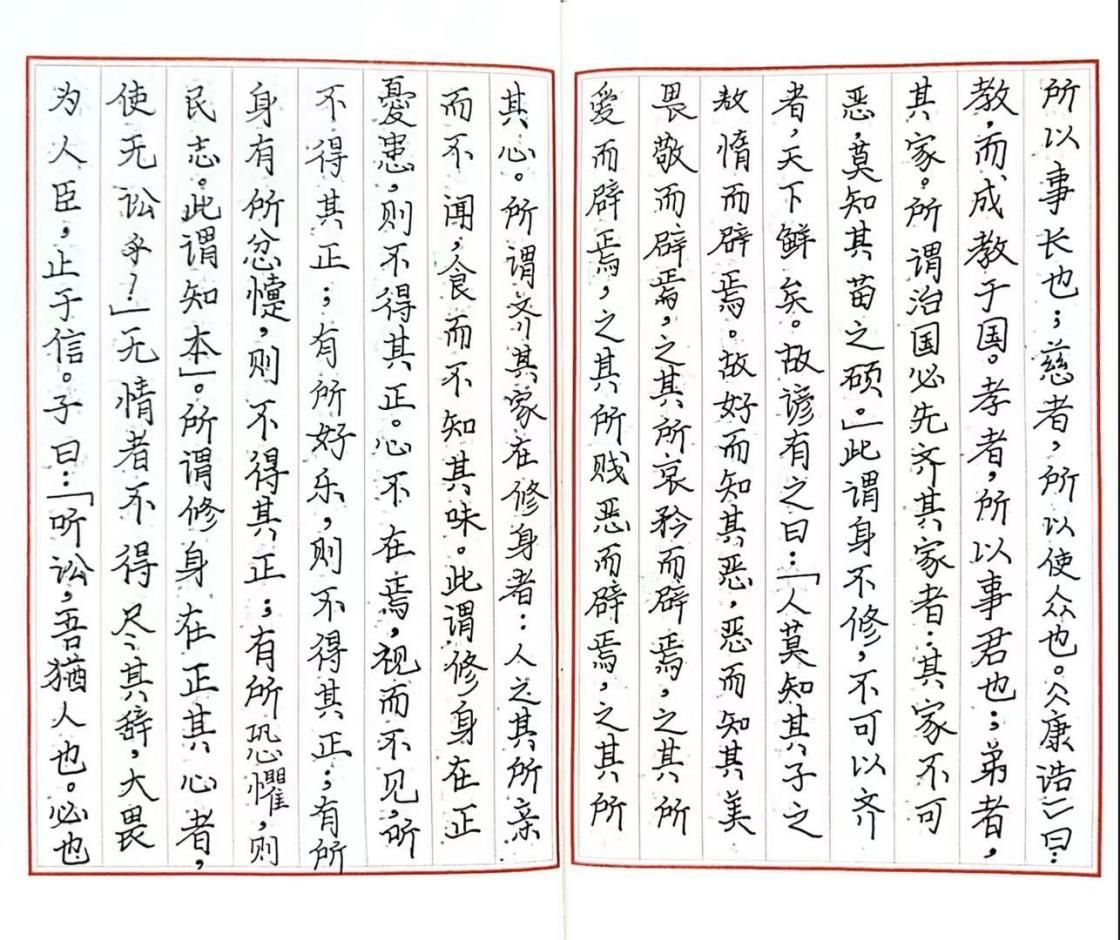 为人臣，止于信。子曰：「听讼，吾猶人也。必也
使无讼乎！」无情者不得尽其辞，大畏
民志。此谓知本」。所谓修身在正其心者，
身有所忿懥，则不得其正；有所恐懼，则
不得其正；有所好乐，则不得其正；有所
憂患，则不得其正。心不在焉，视而不见，听
而不闻，食而不知其味。此谓修身在正
其心。所谓齐其家在修身者：人之其所亲
愛而辟焉，之其所贱恶而辟焉，之其所
畏敬而辟焉，之其所哀矜而辟焉，之其所
敖惰而辟焉。故好而知其恶，恶而知其美
者，天下鲜矣。故谚有之曰：「人莫知其子之
恶，莫知其苗之硕。」此谓身不修，不可以齐
其家。所谓治国必先齐其家者：其家不可
教，而成教于国。孝者，所以事君也；弟者，
所以事长也；慈者，所以使众也。《康诰》曰：